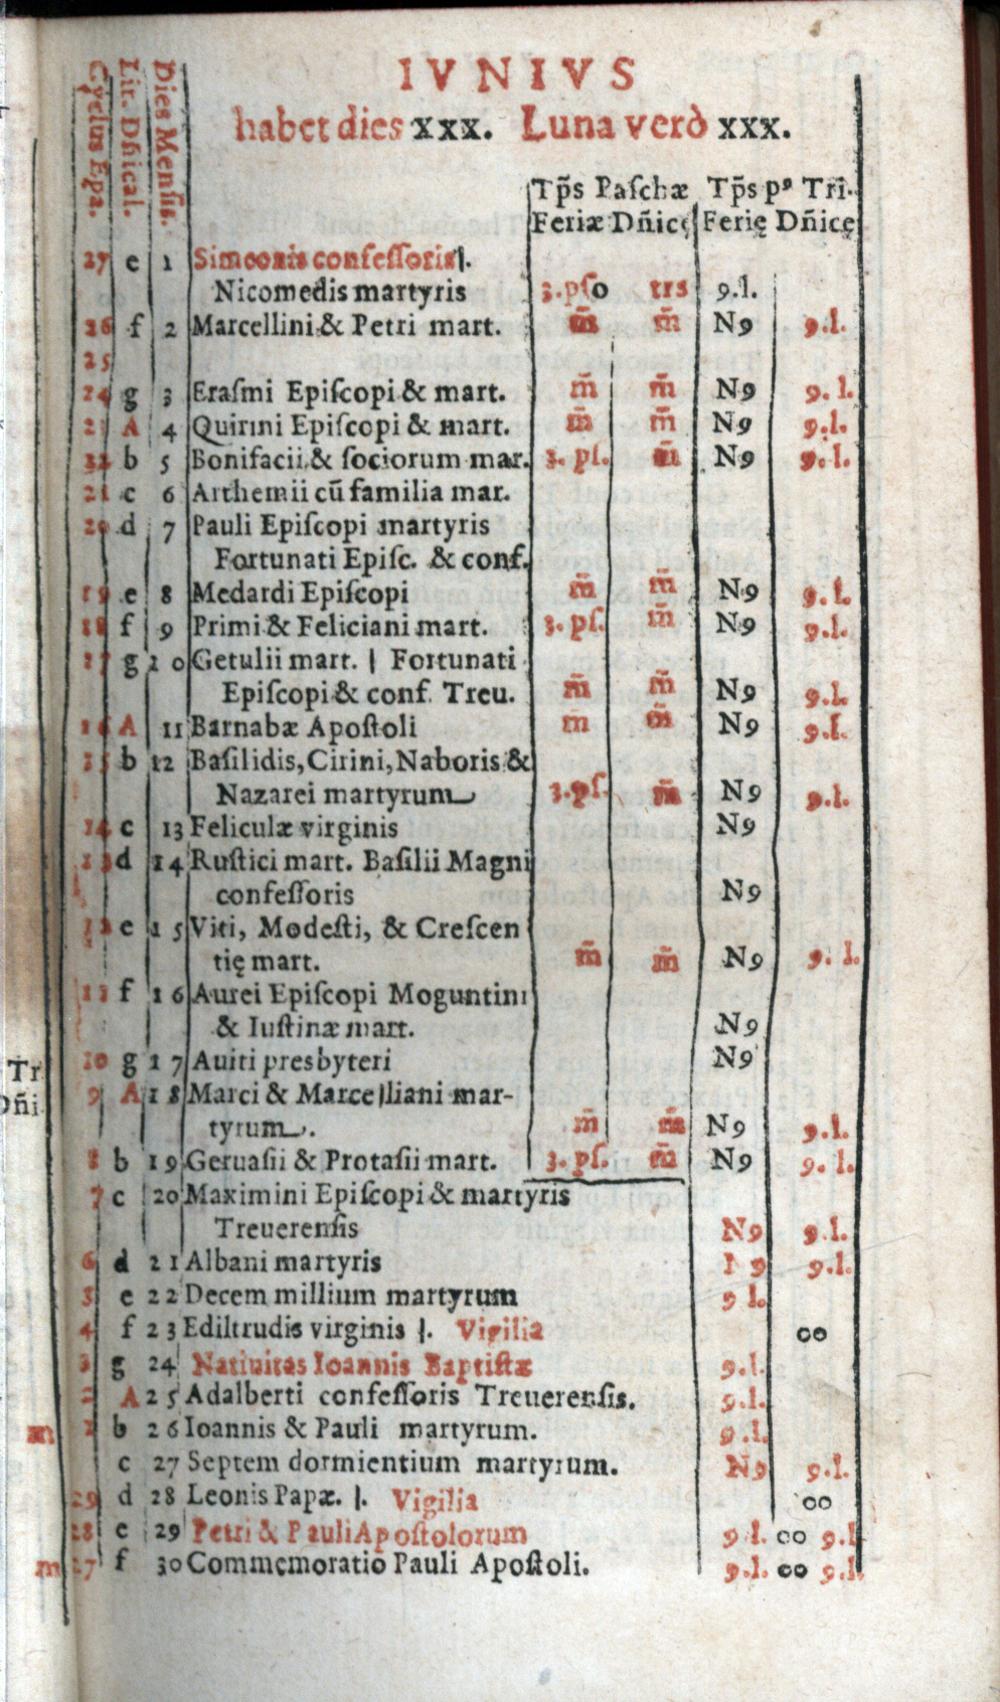 IVNIVS
habet dies xxx. Luna verò xxx.
Cyclus Epa.
Lit. Dñical.
Dies Mensis.
Tp̃s Paſchæ Tp̃s pꝰ Tri.
Feriæ Dñicę Ferię Dñicę
27 e 1 Simeonis confeſſoris|.
Nicomedis martyris 3.pſo trs 9.l.
26 f 2 Marcellini & Petri mart. m̃ m̃ N9 9.l.
25
24 g 3 Eraſmi Epiſcopi & mart. m̃ m̃ N9 9.l.
23 A 4 Quirini Epiſcopi & mart. m̃ m̃ N9 9.l.
22 b 5 Bonifacii & ſociorum mar. 3. pſ. m̃ N9 9.l.
21 c 6 Arthemii cũ familia mar.
20 d 7 Pauli Epiſcopi martyris
Fortunati Epiſc. & conf.
19 e 8 Medardi Epiſcopi m̃ m̃ N9 9.l.
18 f 9 Primi & Feliciani mart. 3. pſ. m̃ N9 9.l.
17 g 10 Getulii mart. | Fortunati
Epiſcopi & conf. Treu. m̃ m̃ N9 9.l.
16 A 11 Barnabæ Apoſtoli m̃ m̃ N9 9.l.
15 b 12 Baſilidis, Cirini, Naboris &
Nazarei martyrum 3.pſ. m̃ N9 9.l.
14 c 13 Feliculæ virginis N9
13 d 14 Ruſtici mart. Baſilii Magni
confeſſoris N9
12 e 15 Viti, Modeſti, & Creſcen
tię mart. m̃ m̃ N9 9.l.
11 f 16 Aurei Epiſcopi Moguntini
& Iuſtinæ mart. N9
10 g 17 Auiti presbyteri N9
9 A 18 Marci & Marcelliani mar-
tyrum. m̃ m̃ N9 9.l.
8 b 19 Geruaſii & Protaſii mart. 3. pſ. m̃ N9 9.l.
7 c 20 Maximini Epiſcopi & martyris
Treuerenſis N9 9.l.
6 d 21 Albani martyris 9 9.l.
5 e 22 Decem millium martyrum 9 l.
4 f 23 Ediltrudis virginis |. Vigilia oo
3 g 24 Natiuitas Ioannis Baptiſtæ 9.l.
2 A 25 Adalberti confeſſoris Treuerenſis. 9.l.
m 1 b 26 Ioannis & Pauli martyrum. 9.l.
c 27 Septem dormientium martyrum. N9 9.l.
29 d 28 Leonis Papæ. |. Vigilia oo
28 e 29 Petri & Pauli Apoſtolorum 9.l. oo 9.l
m 27 f 30 Commemoratio Pauli Apoſtoli. 9.l. oo 9.l.
Tr
Dñi.